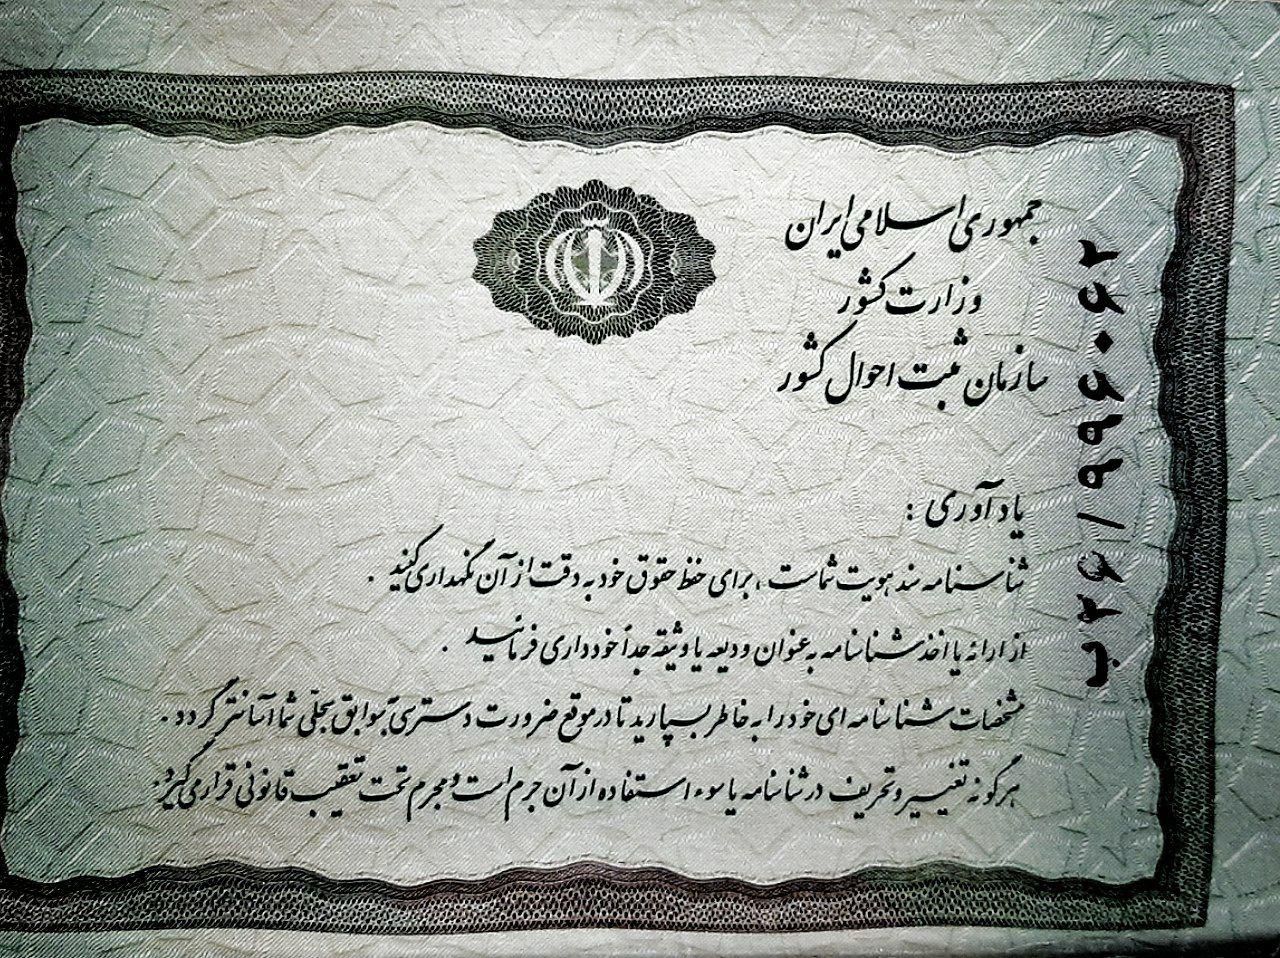 جمهوری اسلامی ایران
وزارت کشور
سازمان ثبت احوال کشور
ب۲۶/۹۹۶۰۶۲
یادآوری :
شناسنامه سند هویت شماست ، برای حفظ حقوق خود به دقت از آن نگهداری کنید .
از ارائه یا اخذ شناسنامه به عنوان ودیعه یا وثیقه جداً خودداری فرمائید .
مشخصات شناسنامه ای خود را به خاطر بسپارید تا در موقع ضرورت دسترسی به سوابق سجلی شما آسانتر گردد .
هرگونه تغییر و تحریف در شناسنامه یا سوء استفاده از آن جرم است و مجرم تحت تعقیب قانونی قرار می گیرد.